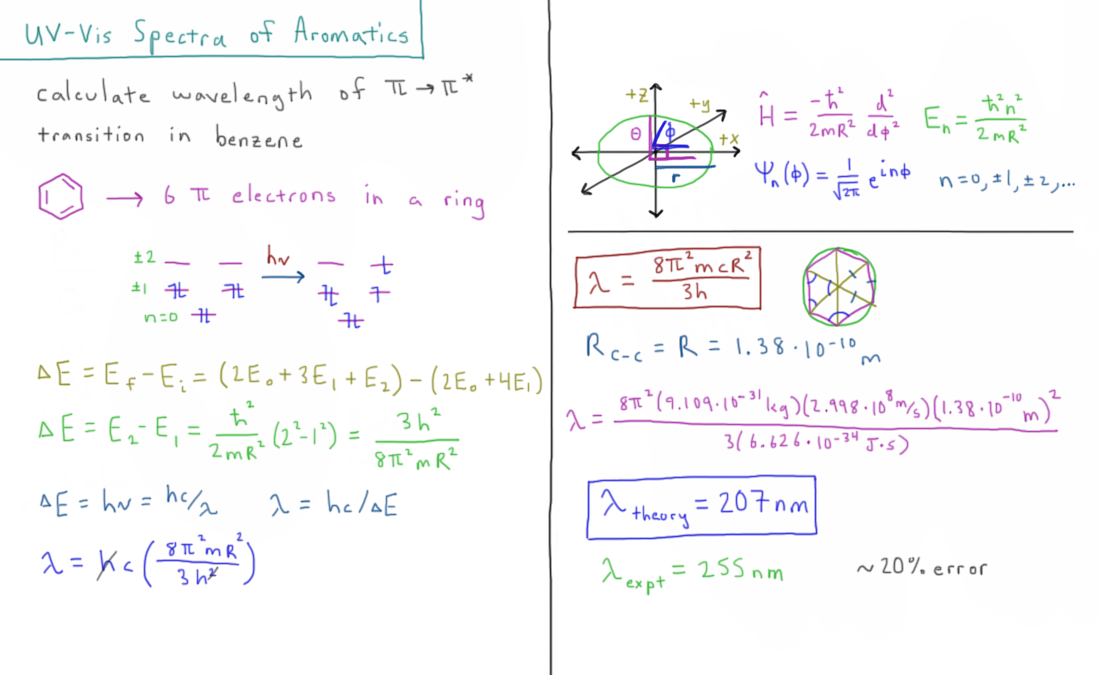 UV-Vis Spectra of Aromatics
calculate wavelength of π → π*
transition in benzene
→ 6 π electrons in a ring
±2
hν
±1
n=0
ΔE = E_f - E_i = (2E₀ + 3E₁ + E₂) - (2E₀ + 4E₁)
ΔE = E₂ - E₁ = ħ²/2mR² (2² - 1²) = 3h²/8π²mR²
ΔE = hν = hc/λ λ = hc/ΔE
λ = hc (8π²mR²/3h²)
+z +y +x θ ϕ r
Ĥ = -ħ²/2mR² d²/dϕ² E_n = ħ²n²/2mR²
Ψ_n(ϕ) = 1/√2π e^{inϕ} n=0, ±1, ±2, ...
λ = 8π²mcR²/3h
R_{C-C} = R = 1.38·10⁻¹⁰ m
λ = 8π²(9.109·10⁻³¹ kg)(2.998·10⁸ m/s)(1.38·10⁻¹⁰ m)²/3(6.626·10⁻³⁴ J·s)
λ_theory = 207 nm
λ_expt = 255 nm ~20% error